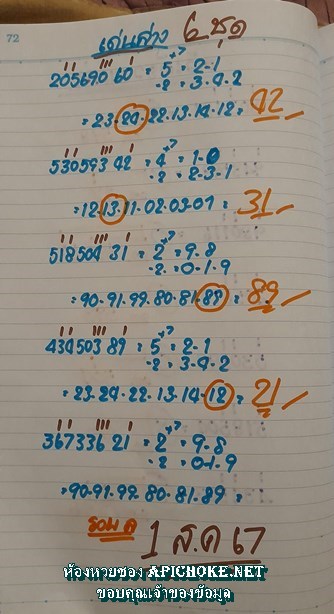 72
เด่นล่าง 6 ชุด
205690 60 = 5 +7 = 2-1
-2 = 3-4-2
= 23-24-22-13-14-12 = 42
530593 42 = 4 +7 = 1-0
-2 = 2-3-1
= 12-13-11-02-03-01 = 31
518504 31 = 2 +7 = 9-8
-2 = 0-1-9
= 90-91-99-80-81-89 = 89
434503 89 = 5 +7 = 2-1
-2 = 3-4-2
= 23-24-22-13-14-12 = 21
367336 21 = 2 +7 = 9-8
-2 = 0-1-9
= 90-91-99-80-81-89
1 ส.ค 67
ห้องหวยซอง APICHOKE.NET
ขอบคุณเจ้าของข้อมูล